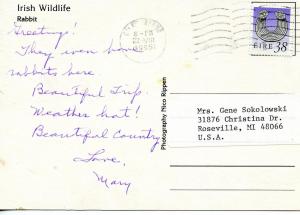 Irish Wildlife
Rabbit
Greetings!
They even have
rabbits here
Beautiful Trip.
Weather hot!
Beautiful Country
Love,
Mary
Photography Thico Rippen
ÉIRE 38
Mrs. Gene Sokolowski
31876 Christina Dr.
Roseville, MI 48066
U.S.A.